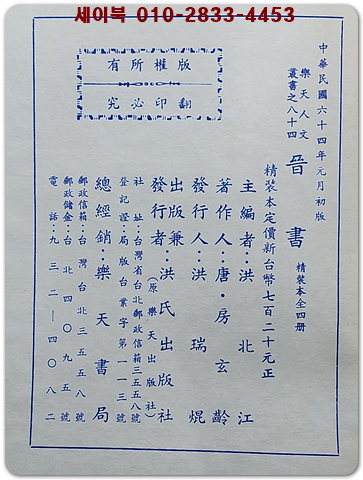 세이북 010-2833-4453
版權所有
翻印必究
中華民國六十四年元月初版
樂天人文
叢書之八十四
晉書
精裝本全四册
精裝本定價新台幣七百二十元正
主編者:洪北江
著作人:唐·房玄齡
發行人:洪瑞焜
出版兼
發行者:洪氏出版社
(原樂天出版社)
社址:台灣省台北郵政信箱三五五八號
登記證:局版台業字第一一一三號
總經銷:樂天書局
郵政信箱:台灣台北三五五八號
郵政儲金:台北四〇九五號
電話:九三二一四〇八二